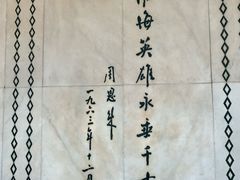 海英雄永垂千
周恩来
一九六三年十二月